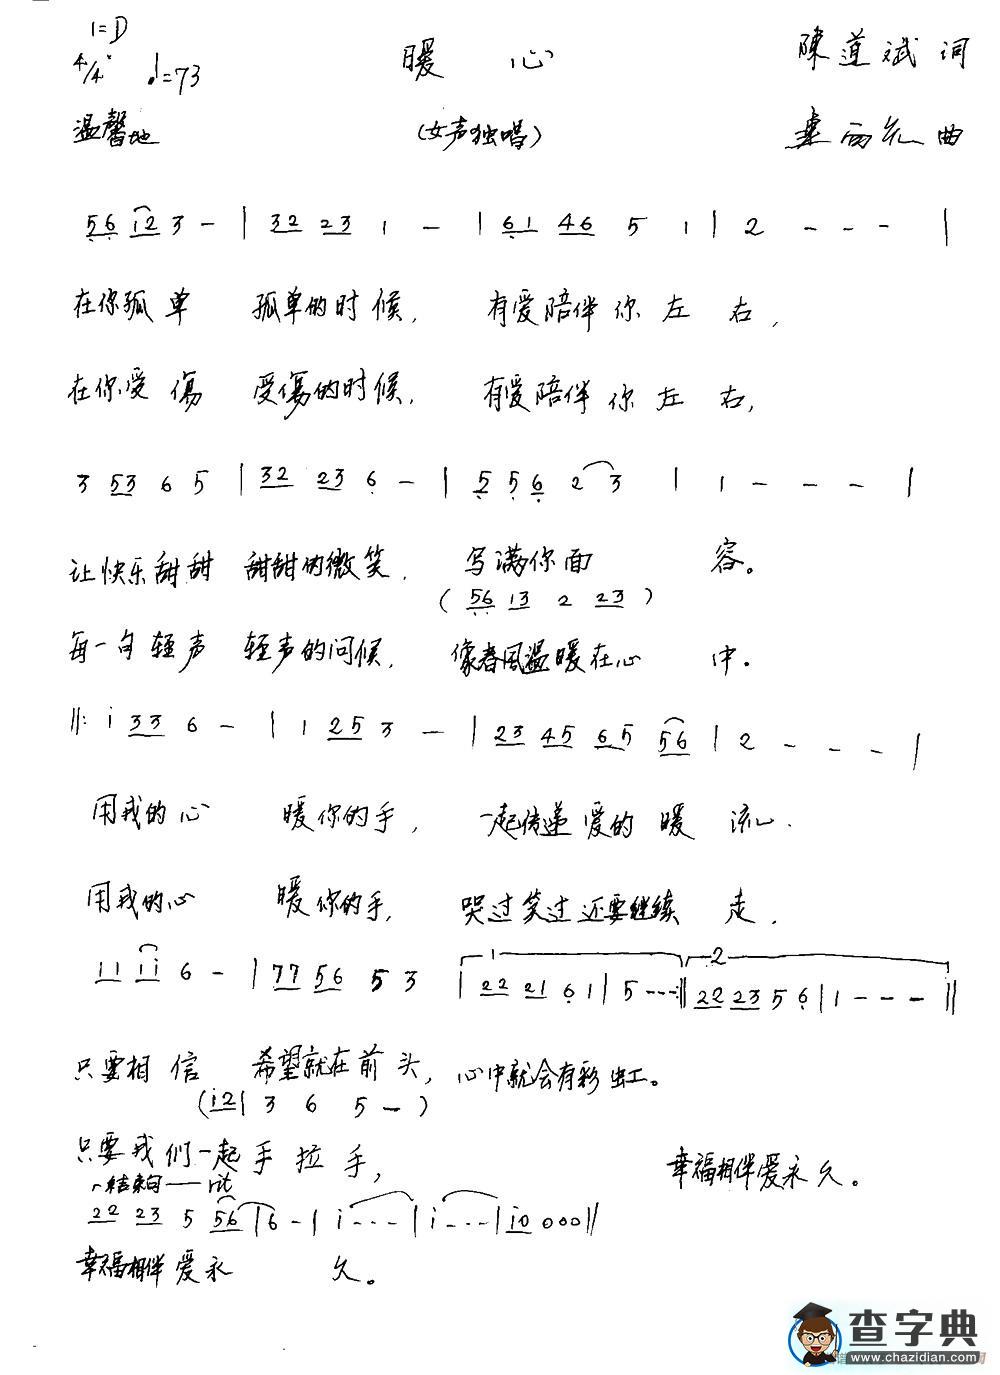 1=D
4/4 ♩=73
暖 心
陳道斌 词
温馨地
(女声独唱)
曲
56 12 3 - | 32 23 1 - | 61 46 5 1 | 2 - - - |
在你孤单 孤单的时候, 有爱陪伴你左右,
在你受傷 受傷的时候, 有爱陪伴你左右,
3 53 6 5 | 32 23 6 - | 5 5 6 2 3 | 1 - - - |
让快乐甜甜 甜甜的微笑, 写满你面容。
( 56 13 2 23 )
每一句轻声 轻声的问候, 像春风温暖在心中.
||: i 33 6 - | 1 25 3 - | 23 45 65 56 | 2 - - - |
用我的心 暖你的手, 一起传递爱的暖流.
用我的心 暖你的手, 哭过笑过还要继续走.
11 ii 6 - | 77 56 5 3 | 1 22 21 6 1 | 5 - - - :|| 2 22 23 5 6 | 1 - - - ||
只要相信 希望就在前头, 心中就会有彩虹。
(i2| 3 6 5 - )
只要我们一起手拉手, 幸福相伴爱永久。
结束句 rit
22 23 5 56 | 6 - | i - - - | i - - - | i0 0 0 0 ||
幸福相伴爱永久。
查字典
www.chazidian.com